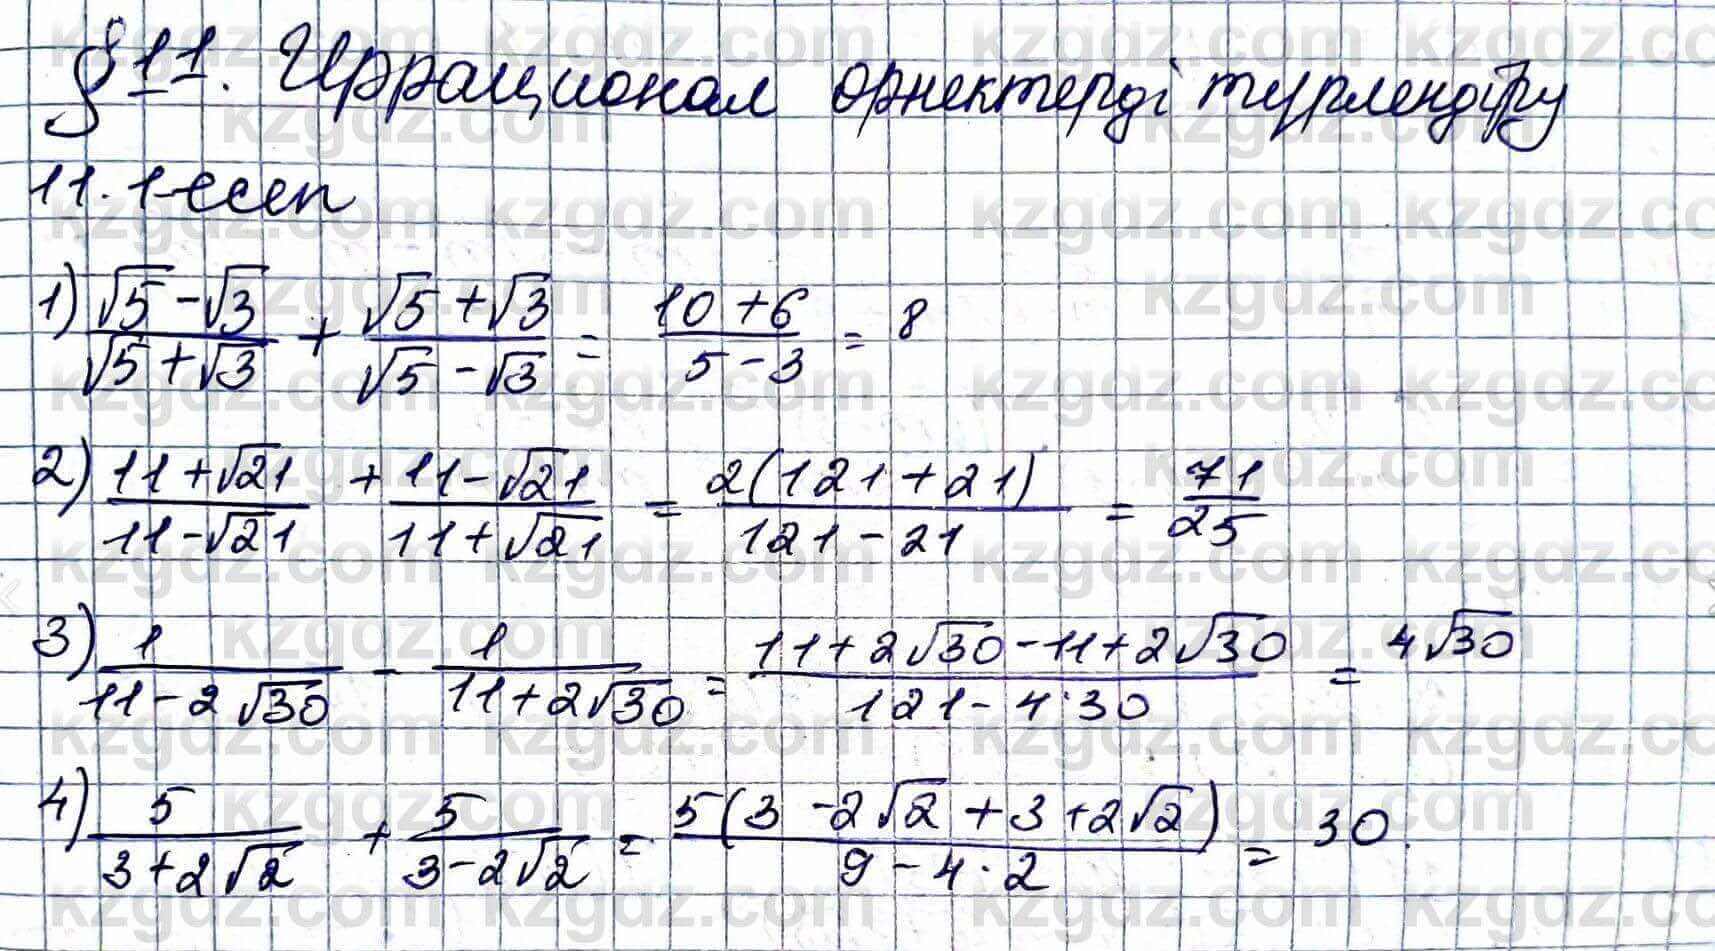 §11. Иррационал өрнектерді түрлендіру
11.1-есеп
1) (√5 - √3)/(√5 + √3) + (√5 + √3)/(√5 - √3) = (10 + 6)/(5 - 3) = 8
2) (11 + √21)/(11 - √21) + (11 - √21)/(11 + √21) = 2(121 + 21)/(121 - 21) = 71/25
3) 1/(11 - 2√30) - 1/(11 + 2√30) = (11 + 2√30 - 11 + 2√30)/(121 - 4·30) = 4√30
4) 5/(3 + 2√2) + 5/(3 - 2√2) = 5(3 - 2√2 + 3 + 2√2)/(9 - 4·2) = 30.
kzgdz.com